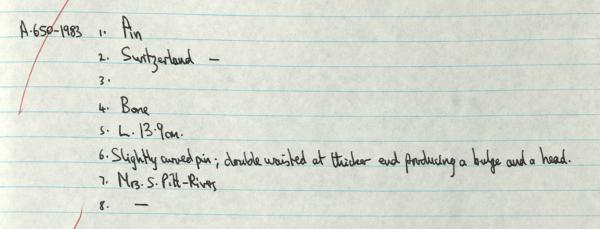 A.650-1983 1. Pin
2. Switzerland —
3.
4. Bone
5. L. 13.9cm.
6. Slightly curved pin; double waisted at thicker end producing a bulge and a head.
7. Mrs. S. Pitt-Rivers
8. —